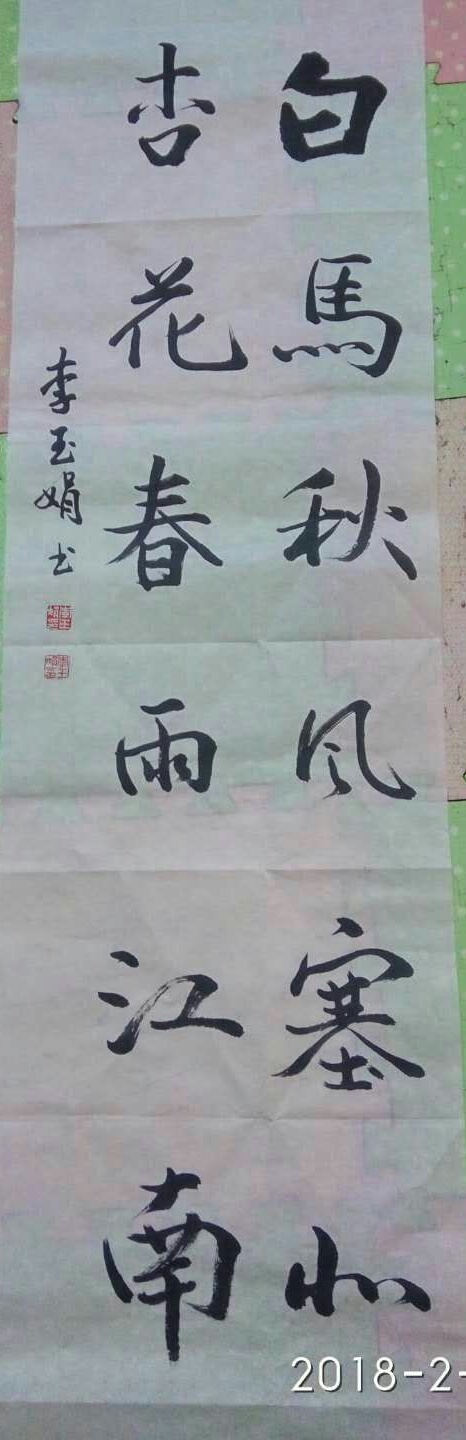 白馬秋风塞北
杏花春雨江南
李玉娟书
2018-2-